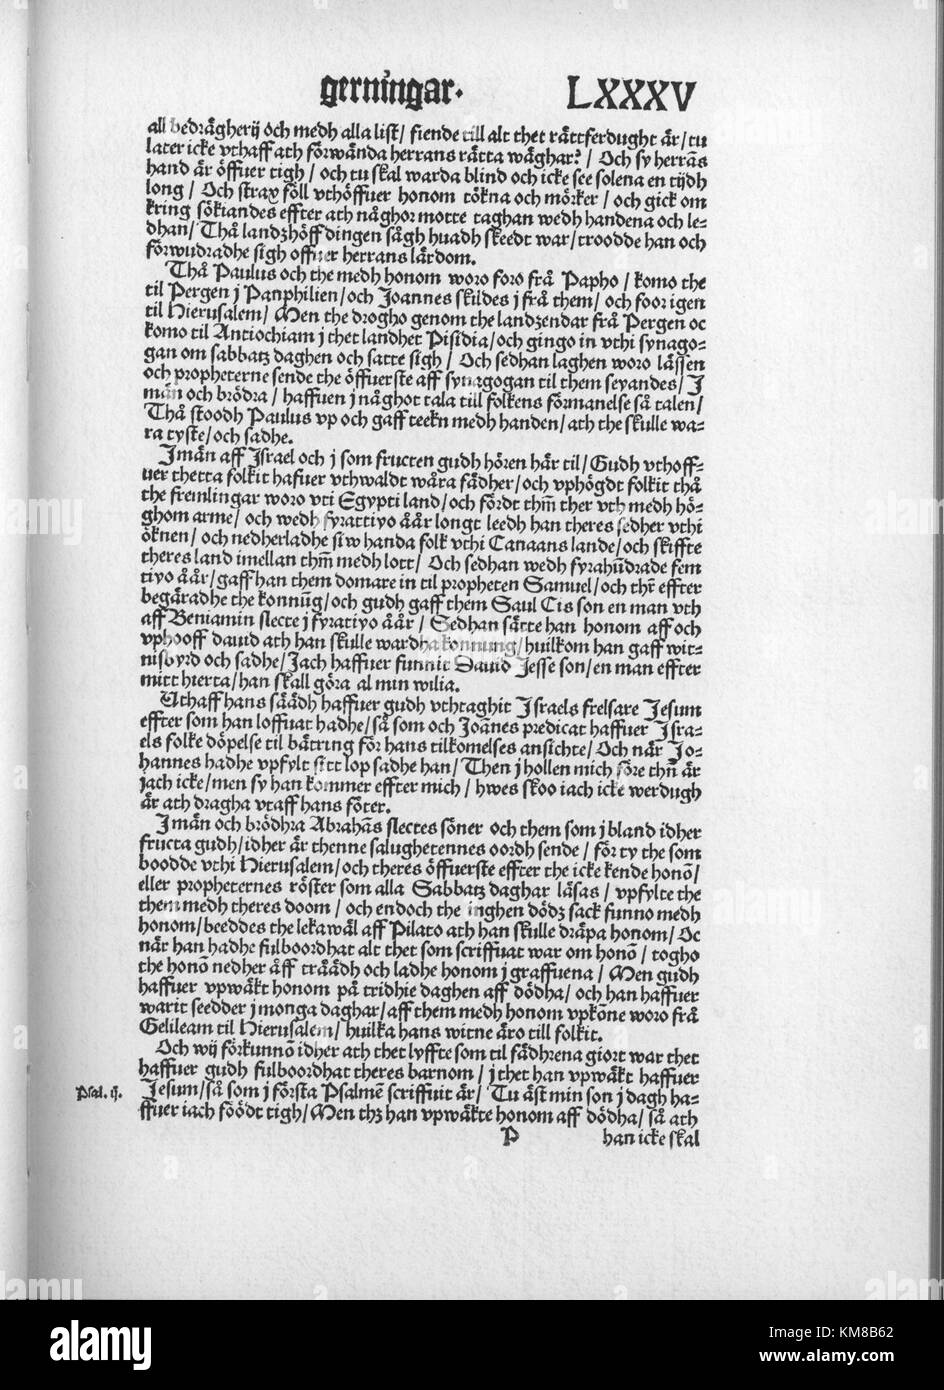 gerningar.
LXXXV
all bedrägherij och medh alla list/ fiende till alt thet rättferdught är/ tu
later icke vthaff ath förwända herrans rätta wäghar? / Och sy herrãs
hand är öffuer tigh / och tu skal warda blind och icke see solena en tijdh
long / Och strax föll vthöffuer honom tökna och mörker / och gick om
kring sökiandes effter ath någhor motte taghan wedh handena och le-
dhan/ Thå landzhöffdingen sågh huadh skeedt war/ troodde han och
förwudradhe sigh offuer herrans lärdom.
Thå Paulus och the medh honom woro foro frå Papho / komo the
til Pergen j Panphilien/och Joannes skildes j frå them/ och foor igen
til Hierusalem/ Men the drogho genom the landzendar frå Pergen oc
komo til Antiochiam j thet landhet Pisidia/och gingo in vthi synago-
gan om sabbatz daghen och satte sigh / Och sedhan laghen woro lässen
och propheterne sende the öffuerste aff synagogan til them seyandes/ J
män och brödra / haffuen j någhot tala till folkens förmanelse så talen/
Thå stoodh Paulus vp och gaff teekn medh handen/ath the skulle wa-
ra tyste/och sadhe.
Jmän aff Jsrael och j som fructen gudh hören här til/ Gudh vthoff-
uer thetta folkit hafuer vthwaldt wåra fädher/och vphögdt folkit thå
the fremlingar woro vti Egypti land/och fördt thm̃ ther vth medh hö-
ghom arme/ och wedh fyrattiyo åår longt leedh han theres sedher vthi
öknen/ och nedherladhe siw handa folk vthi Canaans lande/och skiffte
theres land imellan thm̃ medh lott/ Och sedhan wedh fyrahũdrade fem
tiyo åår/gaff han them domare in til propheten Samuel/och thr̃ effter
begäradhe the konnũg/och gudh gaff them Saul Cis son en man vth
aff Beniamin slecte j fyratiyo åår / Sedhan sätte han honom aff och
vphooff dauid ath han skulle wardha konnung/huilkom han gaff wit-
nisbyrd och sadhe/Jach haffuer funnit Dauid Jesse son/en man effter
mitt hierta/han skall göra al min wilia.
Uthaff hans säädh haffuer gudh vthtaghit Jsraels frelsare Jesum
effter som han loffuat hadhe/så som och Joãnes predicat haffuer Jsra-
els folke döpelse til bätring för hans tilkomelses ansichte/Och när Jo-
hannes hadhe vpfylt sitt lop sadhe han/Then j hollen mich före thñ är
iach icke/men sy han kommer effter mich / hwes skoo iach icke werdugh
är ath dragha vtaff hans föter.
Jmän och brödhra Abrahãs slectes söner och them som j bland idher
fructa gudh/idher är thenne salughetennes oordh sende/ för ty the som
boodde vthi Hierusalem/och theres öffuerste effter the icke kende honõ/
eller propheternes röster som alla Sabbatz daghar läsas / vpfylte the
them medh theres doom / och endoch the inghen dödz sack funno medh
honom/beeddes the lekawäl aff Pilato ath han skulle dräpa honom/Oc
när han hadhe fulboordhat alt thet som scriffuat war om honõ / togho
the honõ nedher åff träädh och ladhe honom j graffuena / Men gudh
haffuer vpwäkt honom på tridhie daghen aff dödha/ och han haffuer
warit seedder j monga daghar/aff them medh honom vpkõne woro frå
Gelileam til Hierusalem/ huilka hans witne äro till folkit.
Och wij förkunnõ idher ath thet lyffte som til fädhrena giort war thet
haffuer gudh fulboordhat theres barnom/ j thet han vpwäkt haffuer
Psal. ij.
Jesum/så som j första Psalmẽ scriffuit är/ Tu äst min son j dagh ha-
ffuer iach föödt tigh/Men thz han vpwäkte honom aff dödha/ så ath
P
han icke skal
alamy
Image ID: KM8B62
www.alamy.com